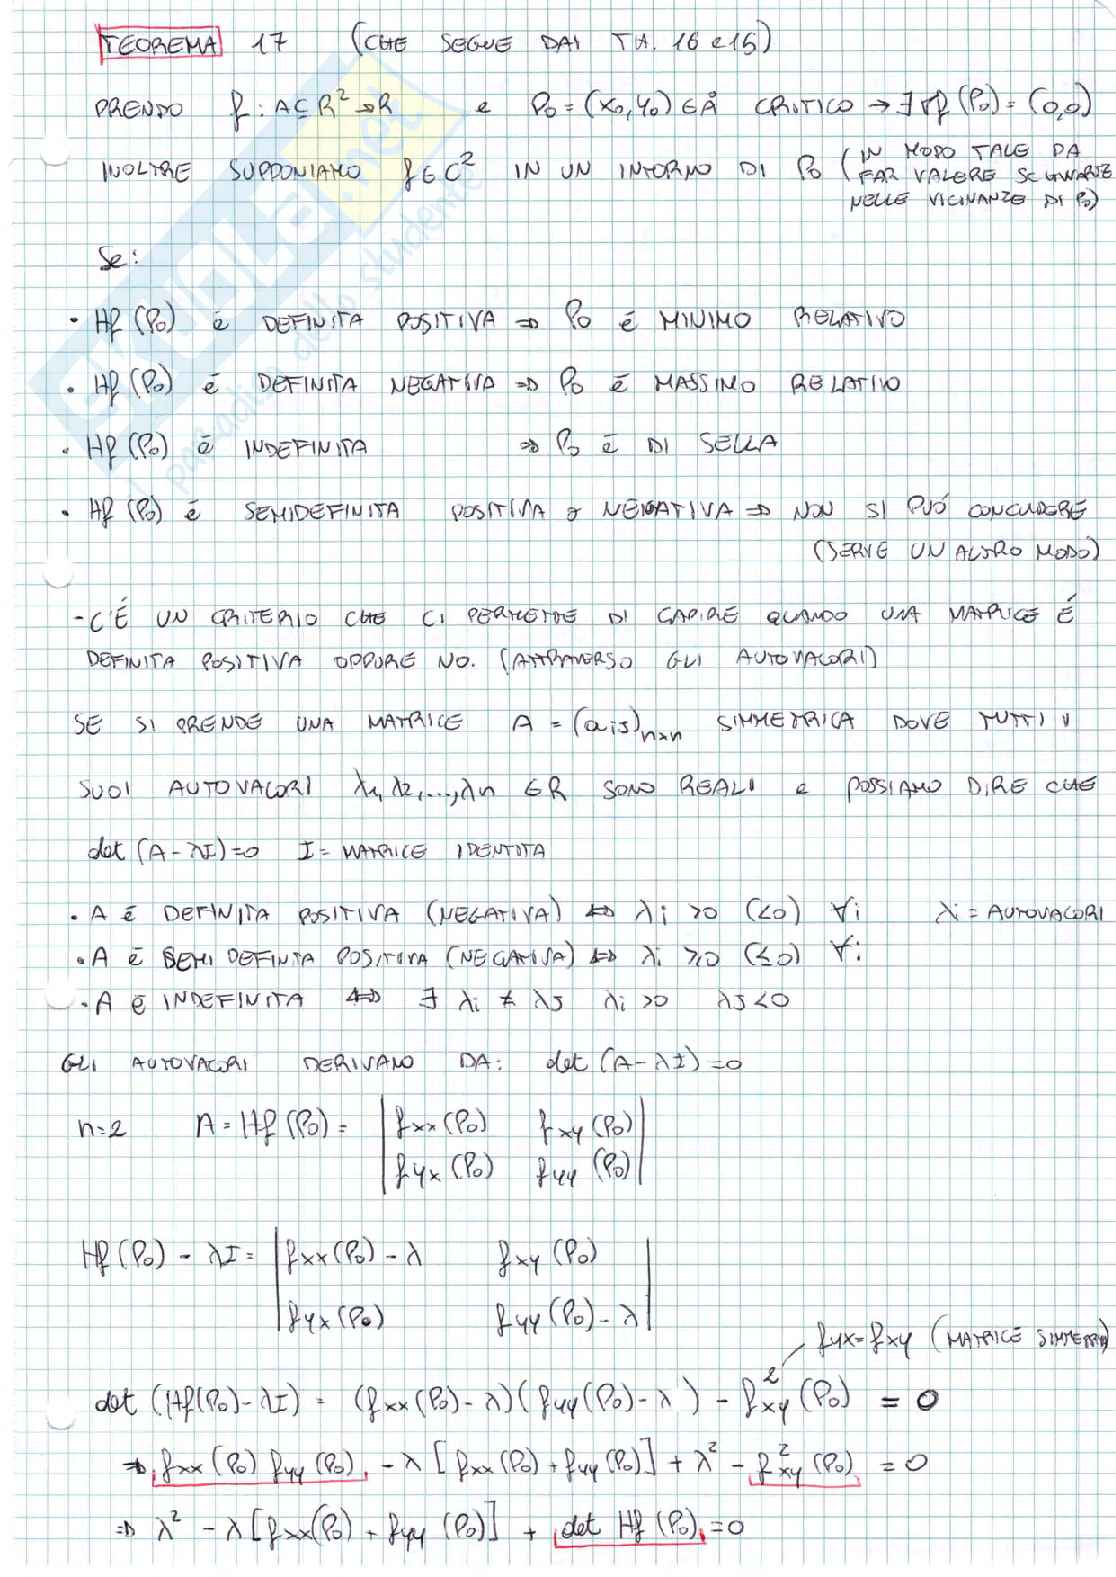 TEOREMA 17 (CHE SEGUE DAI TH. 16 e 15)
PRENDO f: A⊆R² → R e P₀ = (x₀, y₀) ∈ Å CRITICO → ∃ ∇f (P₀) = (0,0)
INOLTRE SUPPONIAMO f ∈ C² IN UN INTORNO DI P₀ (IN MODO TALE DA
FAR VALERE SCHWARZ
NELLE VICINANZE DI P₀)
Se:
• Hf (P₀) è DEFINITA POSITIVA ⇒ P₀ è MINIMO RELATIVO
• Hf (P₀) è DEFINITA NEGATIVA ⇒ P₀ è MASSIMO RELATIVO
• Hf (P₀) è INDEFINITA ⇒ P₀ è DI SELLA
• Hf (P₀) è SEMIDEFINITA POSITIVA o NEGATIVA ⇒ NON SI PUÒ CONCLUDERE
(SERVE UN ALTRO MODO)
- C'È UN CRITERIO CHE CI PERMETTE DI CAPIRE QUANDO UNA MATRICE È
DEFINITA POSITIVA OPPURE NO. (ATTRAVERSO GLI AUTOVALORI)
SE SI PRENDE UNA MATRICE A = (aij)n×n SIMMETRICA DOVE TUTTI I
SUOI AUTOVALORI λ₁, λ₂, ..., λn ∈ R SONO REALI e POSSIAMO DIRE CHE
det (A - λI) = 0 I = MATRICE IDENTITÀ
• A è DEFINITA POSITIVA (NEGATIVA) ⇔ λi > 0 (<0) ∀i λi = AUTOVALORI
• A è SEMI DEFINITA POSITIVA (NEGATIVA) ⇔ λi ≥ 0 (≤0) ∀i
• A è INDEFINITA ⇔ ∃ λi ≠ λj λi > 0 λj < 0
GLI AUTOVALORI DERIVANO DA: det (A - λI) = 0
n=2 A = Hf (P₀) = | fxx (P₀) fxy (P₀) |
| fyx (P₀) fyy (P₀) |
Hf (P₀) - λI = | fxx (P₀) - λ fxy (P₀) |
| fyx (P₀) fyy (P₀) - λ |
fyx = fxy (MATRICE SIMMETRICA)
det (Hf(P₀) - λI) = (fxx (P₀) - λ)(fyy (P₀) - λ) - f²xy (P₀) = 0
⇒ fxx (P₀) fyy (P₀) - λ [fxx (P₀) + fyy (P₀)] + λ² - f²xy (P₀) = 0
⇒ λ² - λ [fxx (P₀) + fyy (P₀)] + det Hf (P₀) = 0
SKUOLA.net
il paradiso dello studente